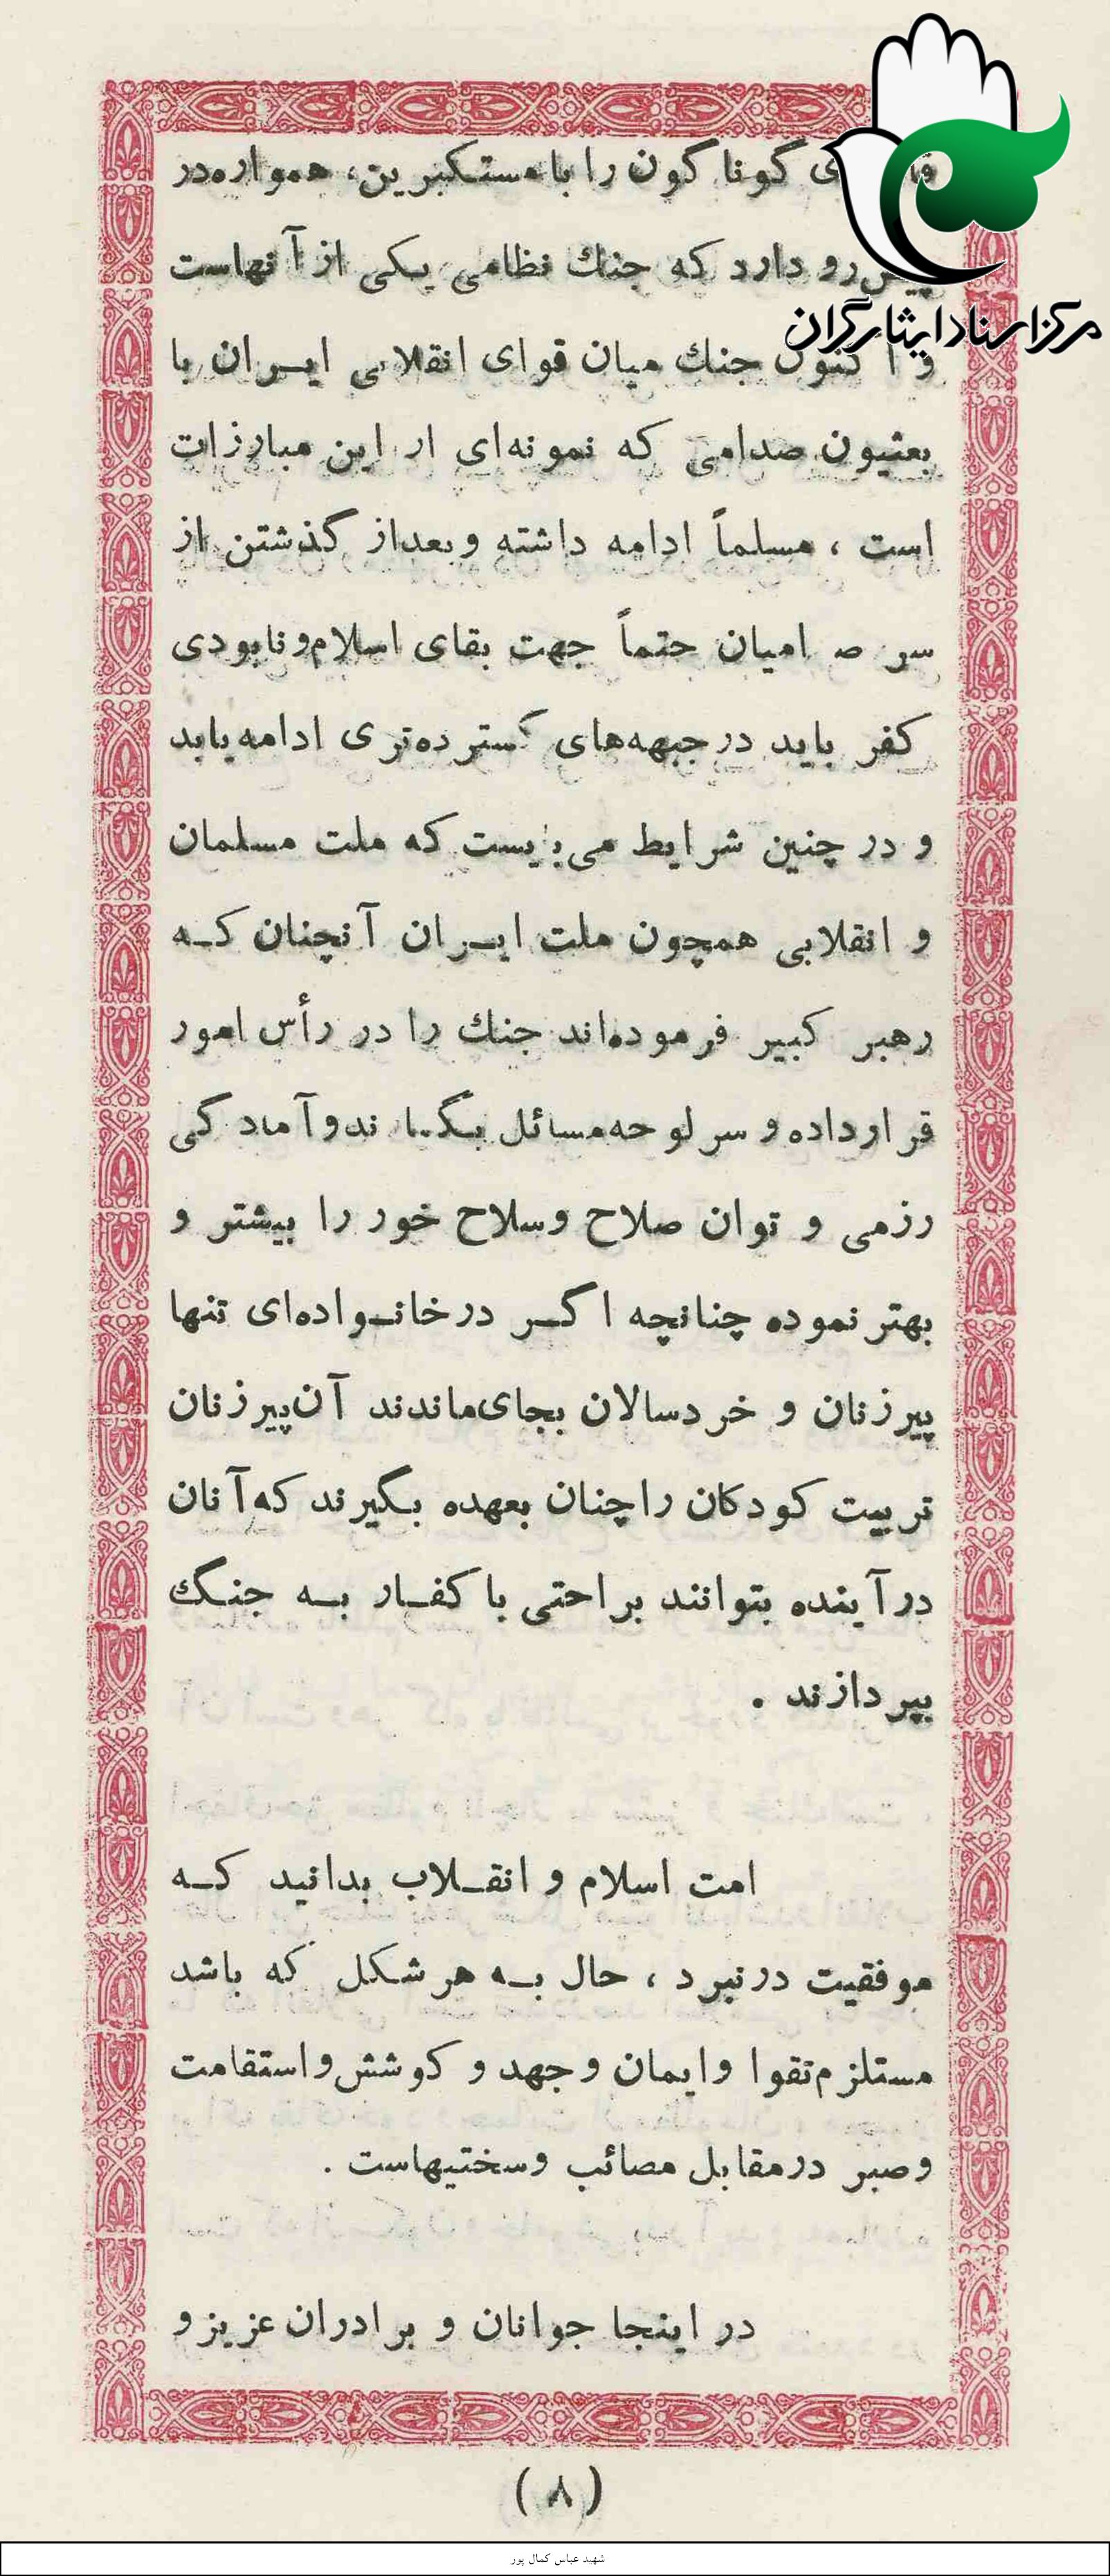 مرکز اسناد ایثارگران
گوناگون را با مستکبرین، همواره در
پیش‌رو دارد که جنك نظامی یکی از آنهاست
و اکنون جنك میان قوای انقلابی ایــران با
بعثیون صدامی که نمونه‌ای از این مبارزات
است ، مسلماً ادامه داشته و بعداز گذشتن از
سر ص امیان حتماً جهت بقای اسلام و نابودی
کفر باید در جبهه‌های گسترده‌تری ادامه یابد
و در چنین شرایط می‌بایست که ملت مسلمان
و انقلابی همچون ملت ایــران آنچنان کــه
رهبر کبیر فرموده‌اند جنك را در رأس امور
قرارداده و سرلوحه مسائل ند و آمادگی
رزمی و توان صلاح وسلاح خور را بیشتر و
بهتر نموده چنانچه اگــر درخانــواده‌ای تنها
پیرزنان و خردسالان بجای‌ماندند آن‌پیرزنان
تربیت کودکان راچنان بعهده بـگیرند که آنان
درآینده بتوانند براحتی با کفــار بــه جنـگ
بپردازند .
امت اسلام و انقــلاب بدانید کــه
موفقیت درنبرد ، حال بــه هرشکل که باشد
مستلزم‌تقوا وایمان وجهد و کوشش واستقامت
وصبر درمقابل مصائب وسختیهاست .
در اینجا جوانان و برادران عزیز و
(۸)
شهید عباس کمال پور